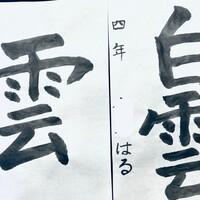 白雲
四年 ・・・はる
雲